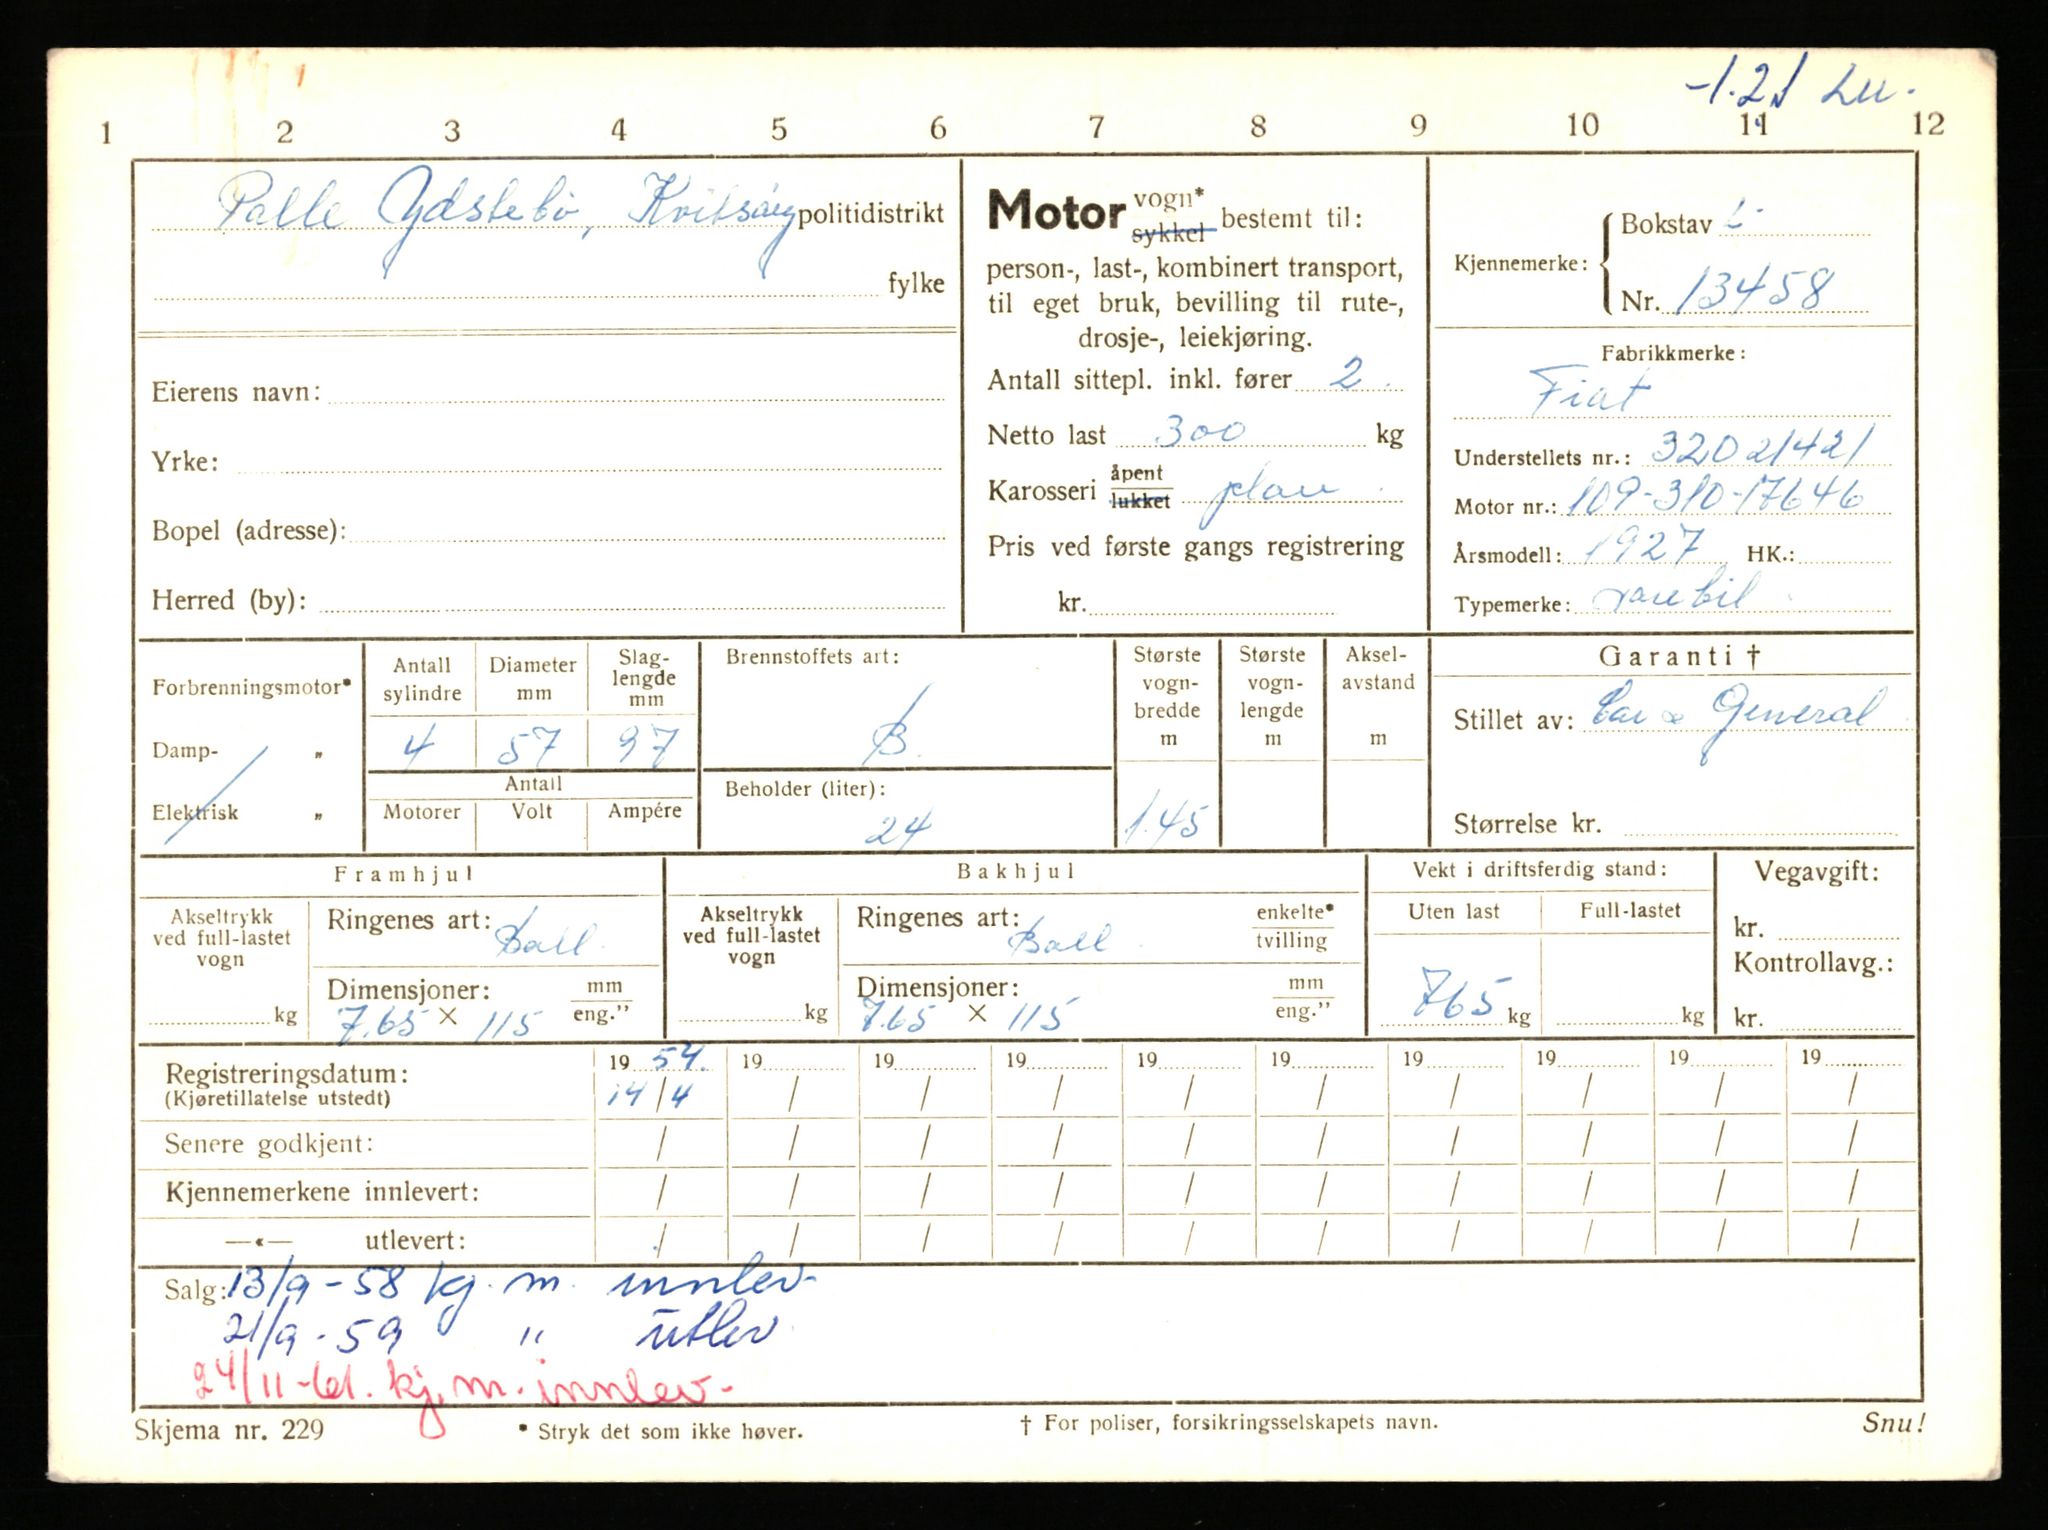 -1.21 Lu.
1 2 3 4 5 6 7 8 9 10 11 12
Palle Ydstebö, Kvitsöy politidistrikt
fylke
Eierens navn:
Yrke:
Bopel (adresse):
Herred (by):
Motor vogn* sykkel bestemt til:
person-, last-, kombinert transport,
til eget bruk, bevilling til rute-,
drosje-, leiekjøring.
Antall sittepl. inkl. fører 2
Netto last 300 kg
Karosseri åpent lukket plan
Pris ved første gangs registrering
kr.
Kjennemerke: Bokstav L
Nr. 13458
Fabrikkmerke:
Fiat
Understellets nr.: 32021421
Motor nr.: 109-310-17646
Årsmodell: 1927 HK.:
Typemerke: varebil
Forbrenningsmotor*
Damp- „
Elektrisk „
Antall sylindre Diameter mm Slag-lengde mm
4 57 97
Antall
Motorer Volt Ampére
Brennstoffets art:
B.
Beholder (liter):
24
Største vogn-bredde m
1.45
Største vogn-lengde m
Aksel-avstand m
Garanti †
Stillet av: Car & General
Størrelse kr.
Framhjul
Akseltrykk ved full-lastet vogn
kg
Ringenes art: Ball
Dimensjoner: mm eng.”
7.65 × 115
Bakhjul
Akseltrykk ved full-lastet vogn
kg
Ringenes art: Ball enkelte* tvilling
Dimensjoner: mm eng.”
7.65 × 115
Vekt i driftsferdig stand:
Uten last Full-lastet
765 kg kg
Vegavgift:
kr.
Kontrollavg.:
kr.
Registreringsdatum: 19 54. 19 19 19 19 19 19 19 19 19
(Kjøretillatelse utstedt) 14/4 / / / / / / / / /
Senere godkjent: / / / / / / / / / /
Kjennemerkene innlevert: / / / / / / / / / /
—«— utlevert: / / / / / / / / / /
Salg: 13/9-58 kj. m. innlev-
21/9-59 " utlev
24/11-61. kj. m. innlev-
Skjema nr. 229 * Stryk det som ikke høver. † For poliser, forsikringsselskapets navn. Snu!